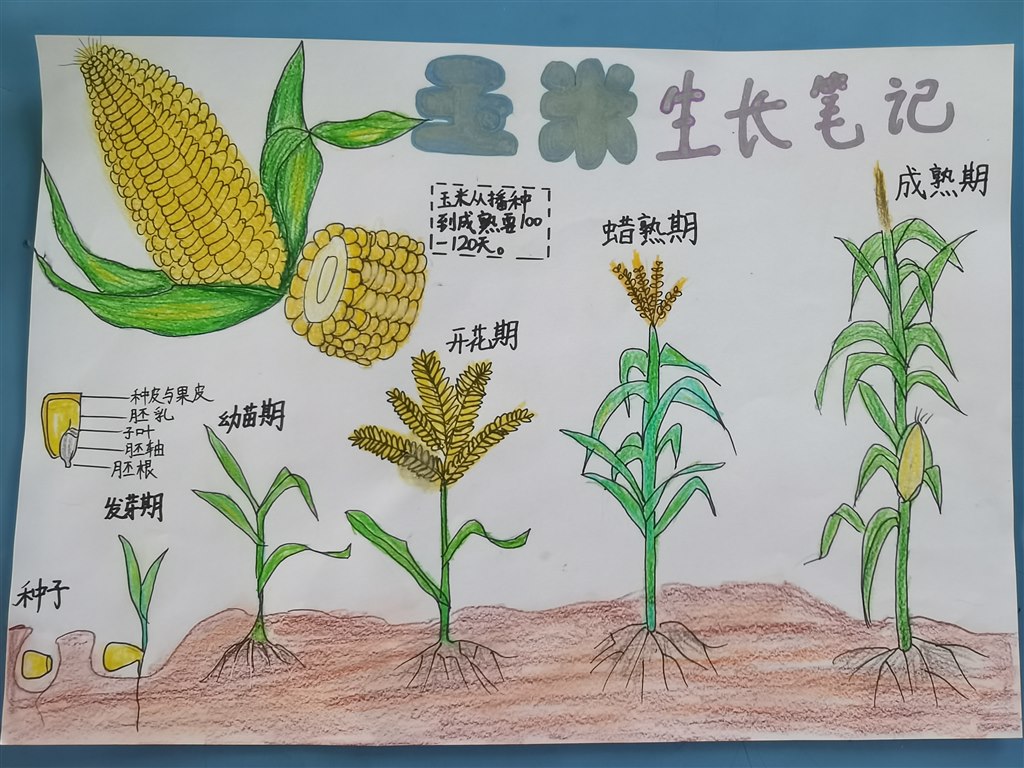 玉米生长笔记
玉米从播种
到成熟要100
-120天。
成熟期
蜡熟期
开花期
幼苗期
种皮与果皮
胚乳
子叶
胚轴
胚根
发芽期
种子